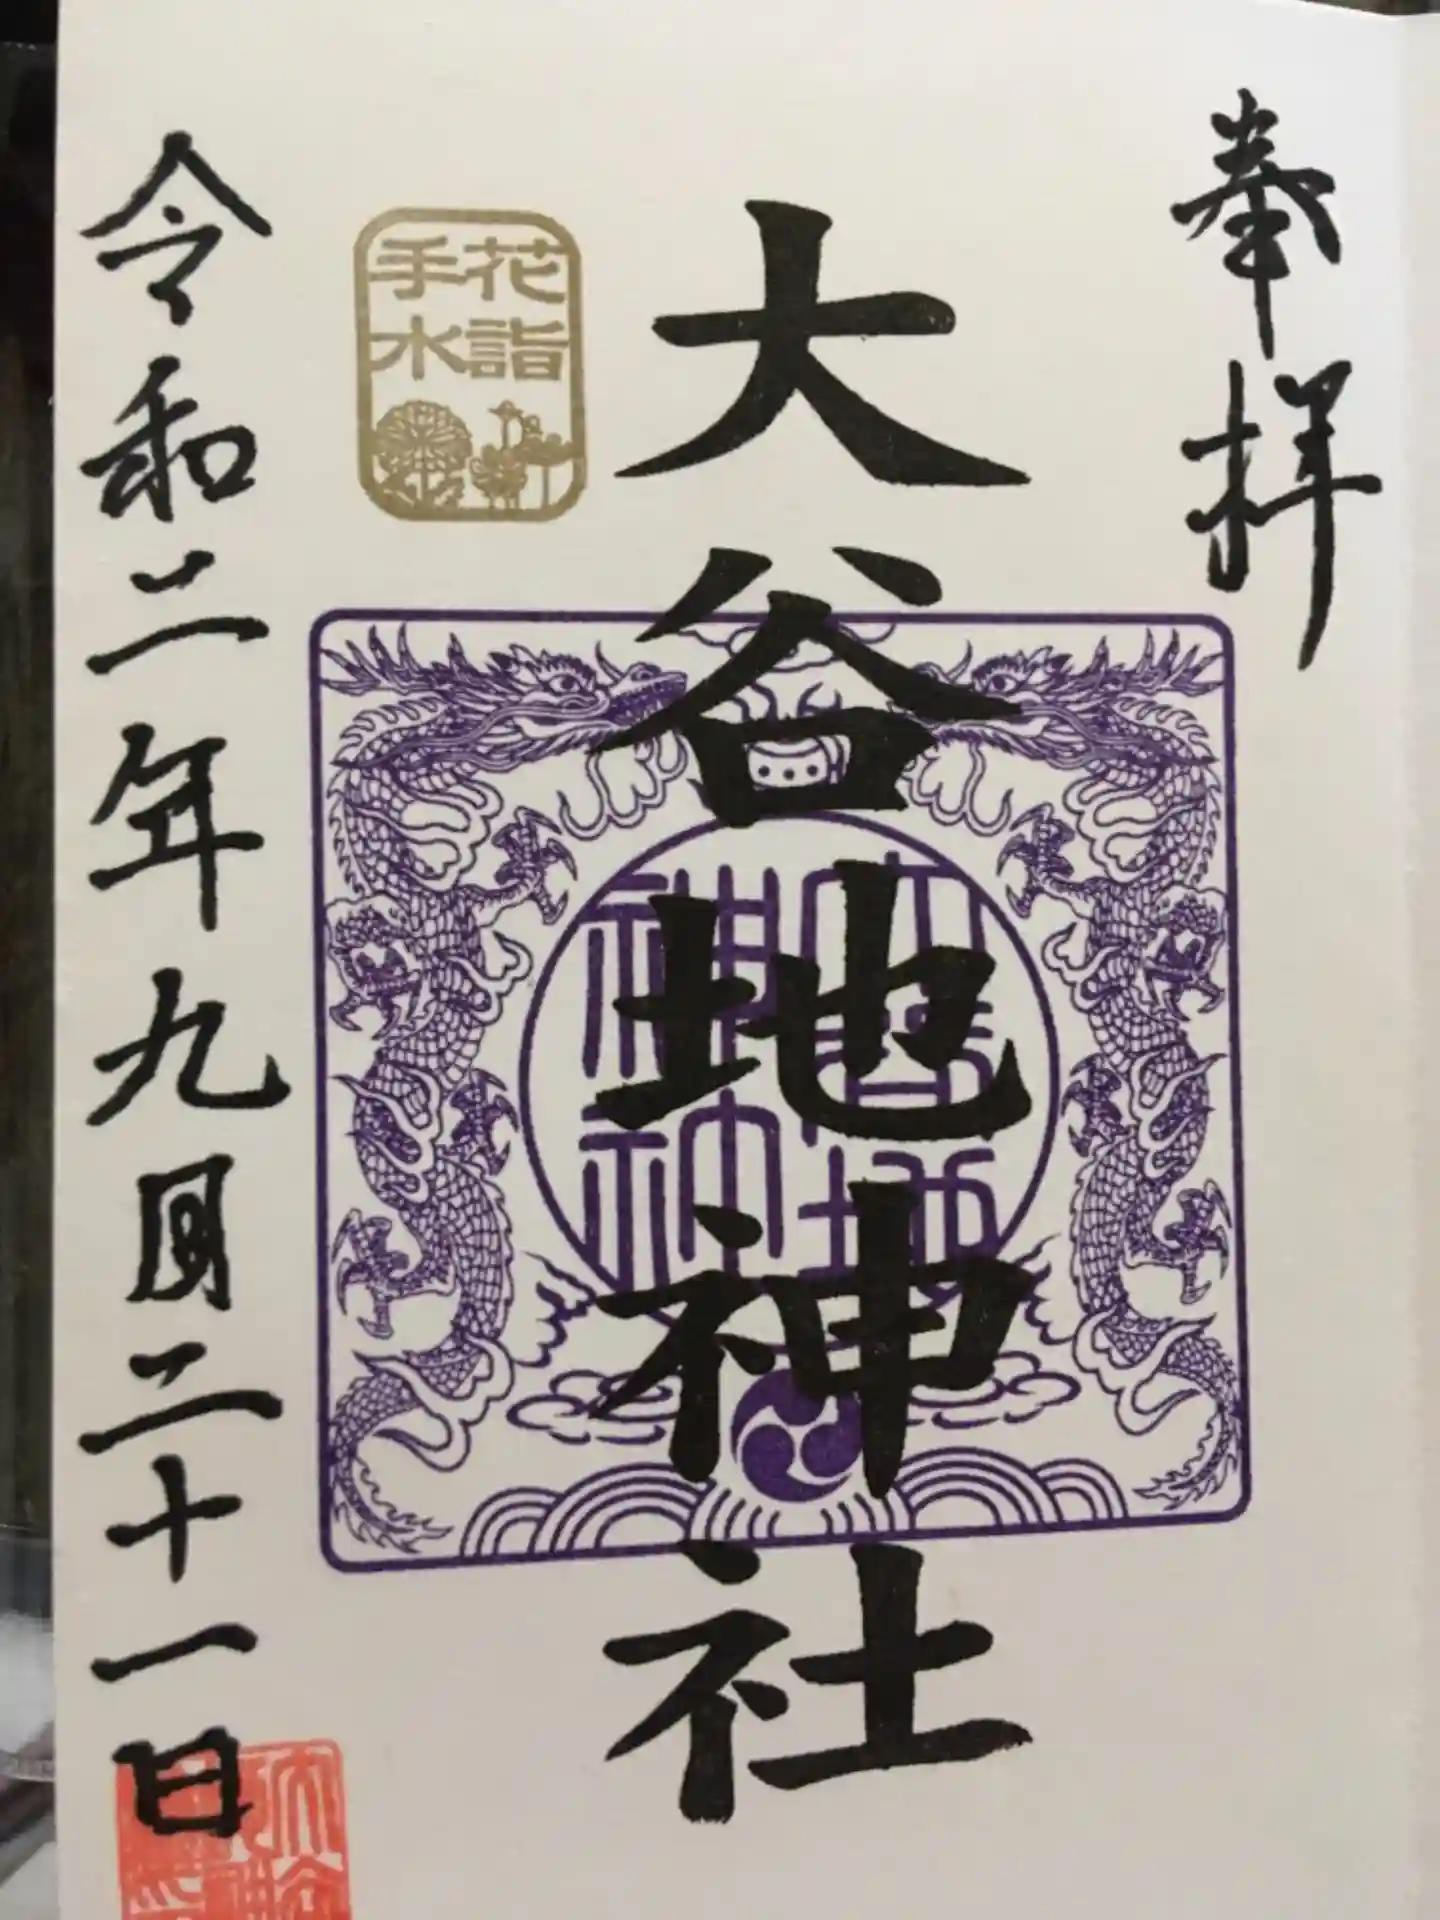 奉拝
大谷地神社
花詣
手水
大谷地
神社神
令和二年九月二十一日